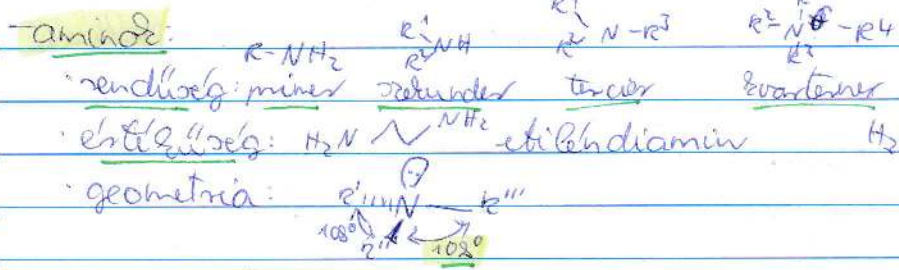 -aminok:
R-NH₂ R¹ R² NH R¹ R² N-R³ R¹ R²-N⊕-R4 R³
· rendűség: primer szekunder tercier kvaterner
· értékűség: H₂N NH₂ etiléndiamin H₂
· geometria: R' N R'''
108° R'' 108°